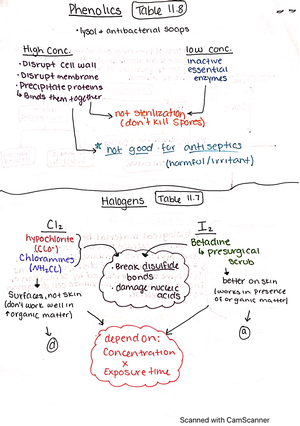 Phenolics Table 11.8
• lysol + antibacterial soaps
High Conc.
• Disrupt Cell wall
• Disrupt membrane
• Precipitate proteins
↳ Binds them together
low conc.
inactive
essential
enzymes
not sterilization
(don't kill spores)
* not good for antiseptics
(harmful/irritant)
Halogens Table 11.7
Cl₂
hypochlorite
(ClO⁻)
Chloramines
(NH₂CL)
Surfaces, not skin
(don't work well in
↑ organic matter)
d
• Break disulfide
bonds
• damage nucleic
acids
I₂
Betadine
↳ presurgical
scrub
better on skin
(works in presence
of organic matter)
a
depend on:
Concentration
x
Exposure time
Scanned with CamScanner